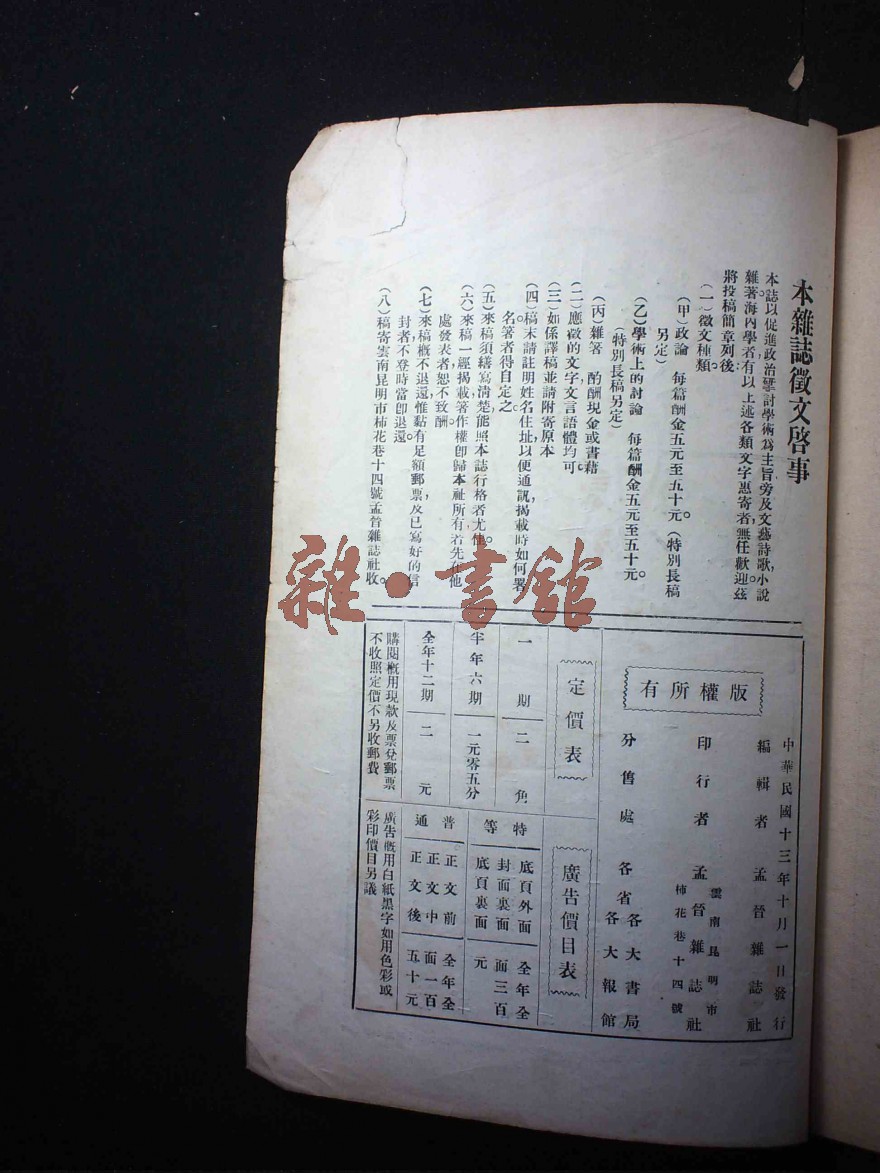 本雜誌徵文啓事
本誌以促進政治硏討學術爲主旨旁及文藝詩歌小說
雜著海內學者有以上述各類文字惠寄者無任歡迎茲
將投稿簡章列後：
（一）徵文種類
（甲）政論　每篇酬金五元至五十元。（特別長稿
另定）
（乙）學術上的討論　每篇酬金五元至五十元。
（特別長稿另定）
（丙）雜著　酌酬現金或書藉
（二）應徵的文字文言語體均可。
（三）如係譯稿並請附寄原本
（四）稿末請註明姓名住址以便通訊，揭載時如何署
名著者得自定之。
（五）來稿須繕寫淸楚能照本誌行格者尤佳。
（六）來稿一經揭載著作權卽歸本社所有若先在他
處發表者恕不致酬。
（七）來稿槪不退還，惟黏有足額郵票及已寫好的信
封者不登時當卽退還。
（八）稿寄雲南昆明市柿花巷十四號孟晉雜誌社收。
版權所有
中華民國十三年十月一日發行
編輯者　孟晉雜誌社
雲南昆明市
柿花巷十四號
印行者　孟晉雜誌社
分售處　各省各大書局
各大報館
定價表
一期　二角
半年六期　一元零五分
全年十二期　二元
購閱槪用現款及票兌郵票
不收照定價不另收郵費
廣告價目表
特等
底頁外面
封面裏面
底頁裏面
全年全
面三百
元
普通
正文前
正文中
正文後
全年全
面一百
五十元
廣告槪用白紙黑字如用色彩或
彩印價目另議
雜·書館